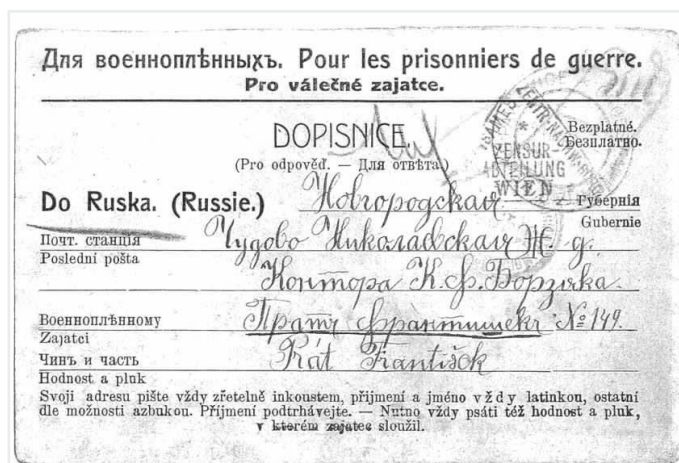 Для военноплѣнныхъ. Pour les prisonniers de guerre.
Pro válečné zajatce.
DOPISNICE.
Bezplatné.
Безплатно.
(Pro odpověď. — Для отвѣта.)
ZENSUR
ABTEILUNG
WIEN
Do Ruska. (Russie.) Новгородская Губернія
Gubernie
Почт. станція Чудово Николаевская Ж. д.
Poslední pošta
Контора К. Ф. Борзяка.
Военноплѣнному Пратъ Франтишекъ № 149.
Zajatci
Чинъ и часть Prát František
Hodnost a pluk
Svoji adresu pište vždy zřetelně inkoustem, přijmení a jméno vždy latinkou, ostatní
dle možnosti azbukou. Příjmení podtrhávejte. — Nutno vždy psáti též hodnost a pluk,
v kterém zajatec sloužil.